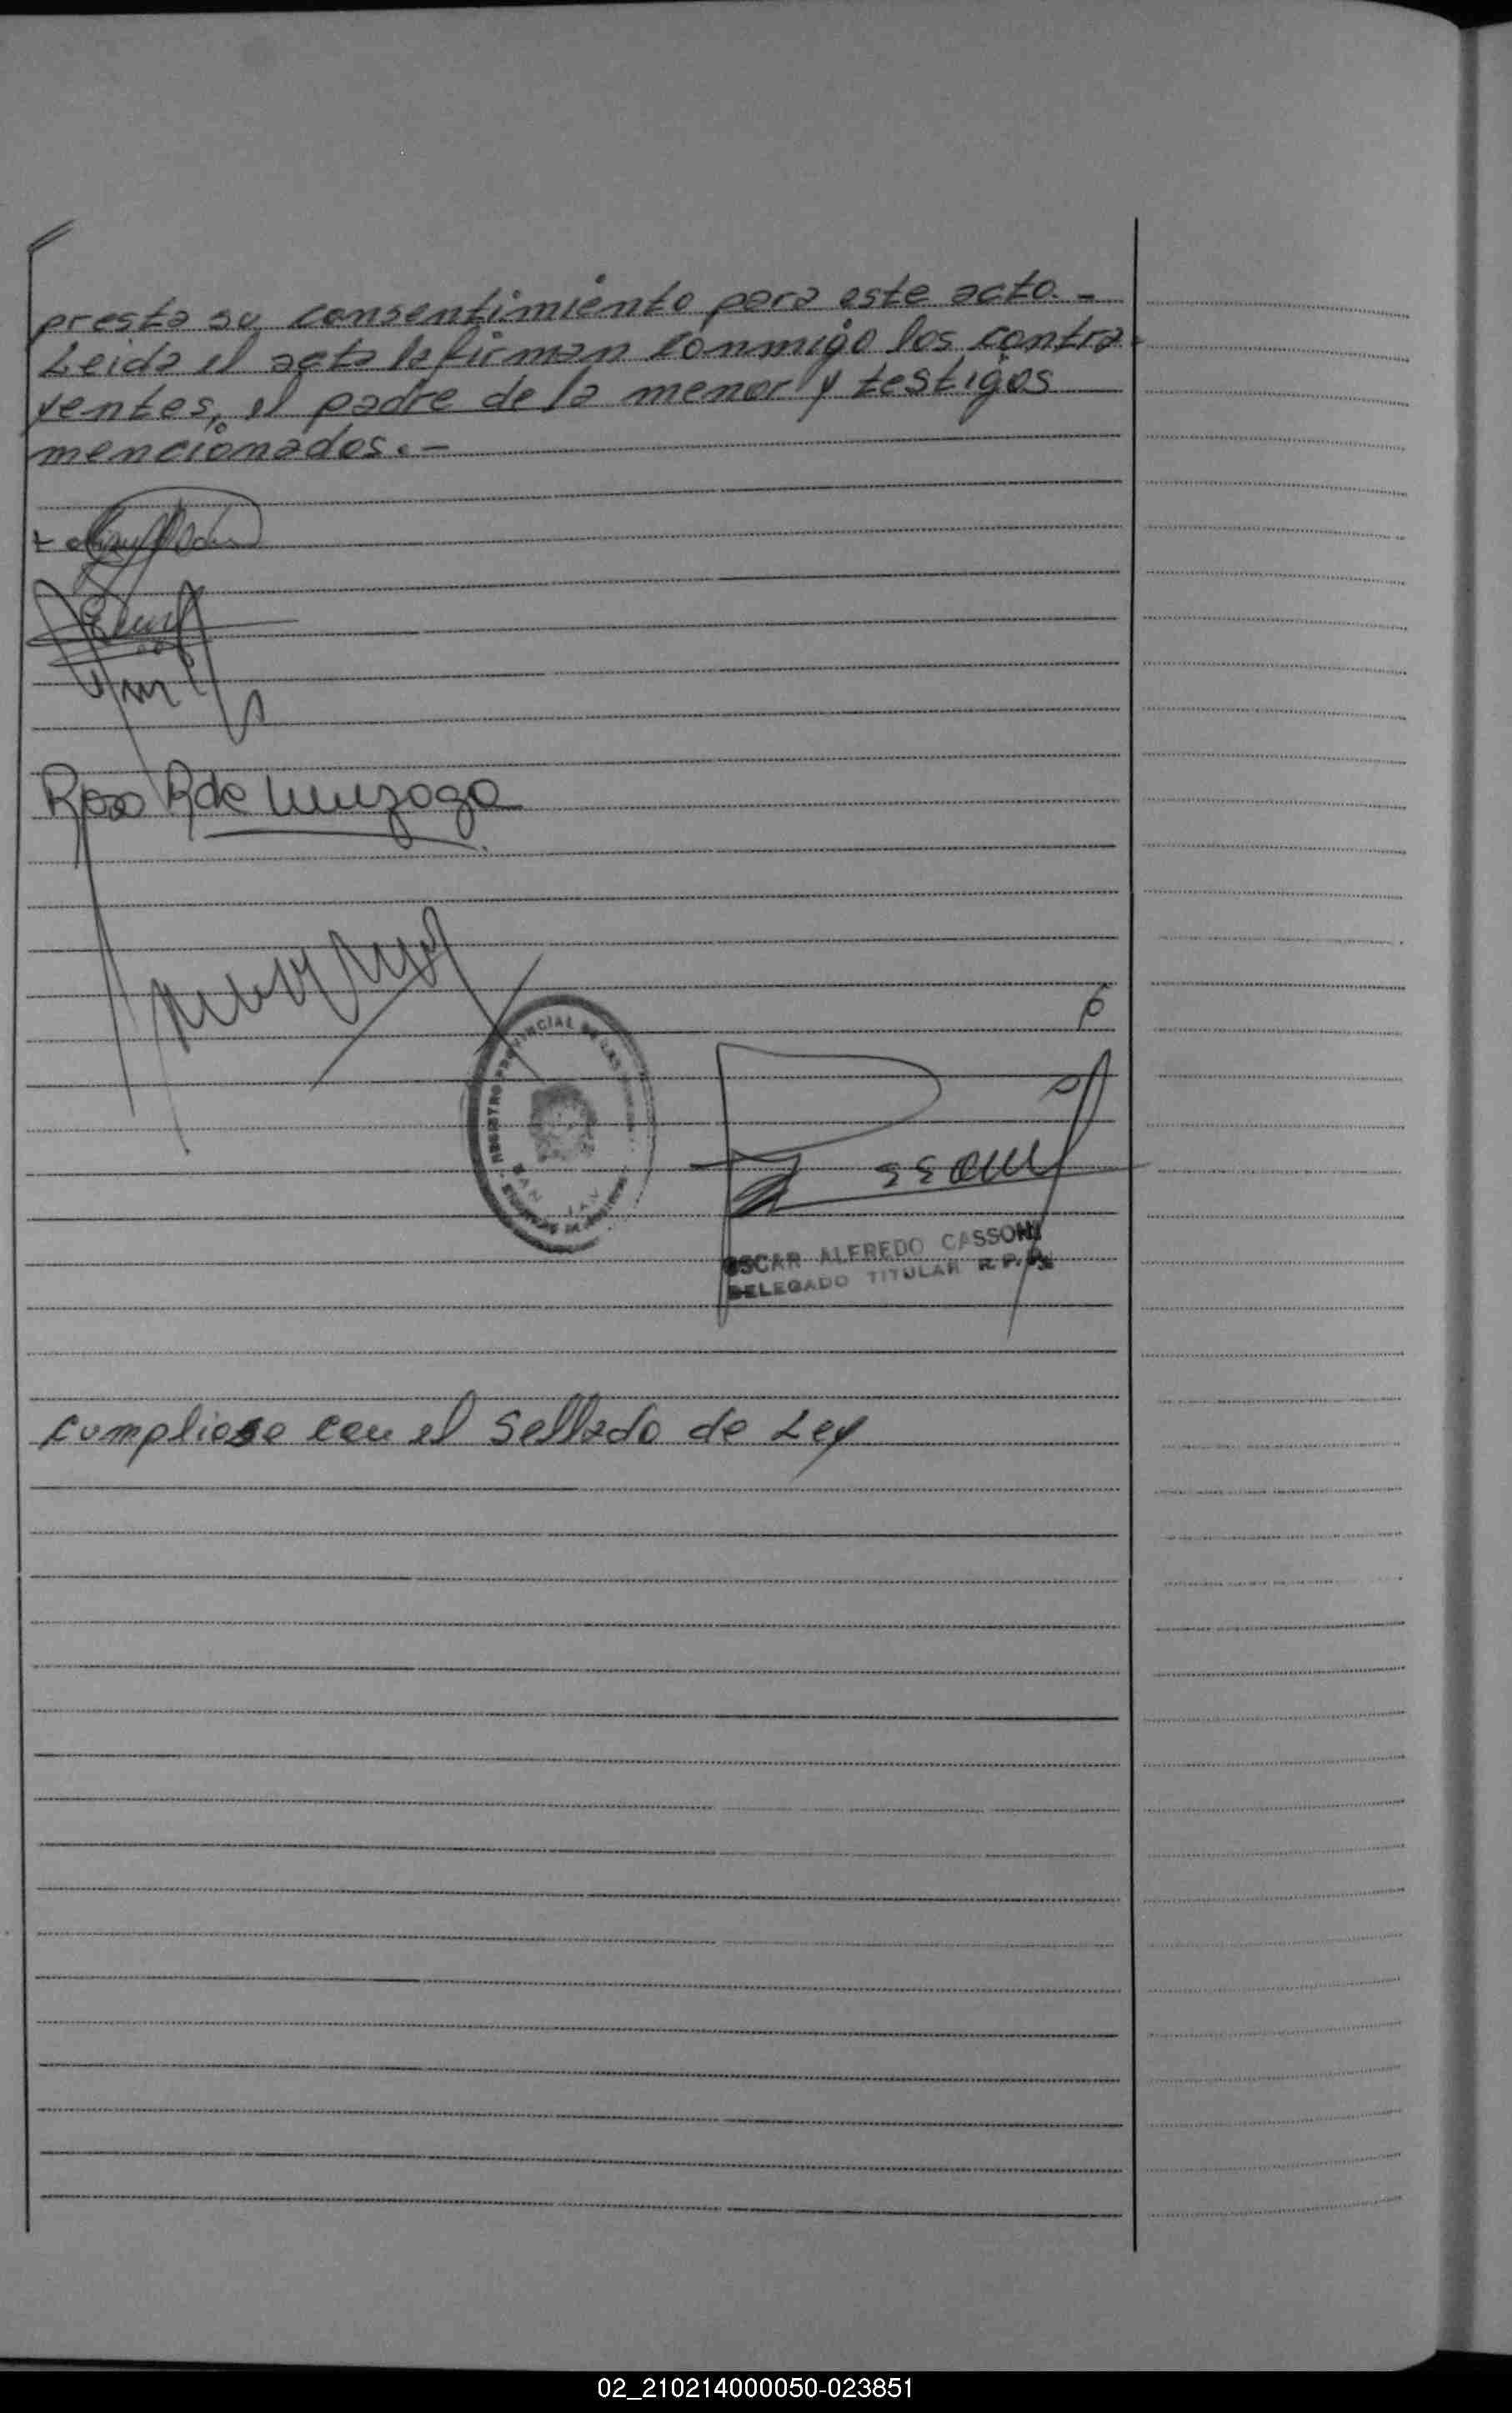 presta su consentimiento para este acto.-
Leida el acta la firman conmigo los contra-
yentes, el padre de la menor y testigos
mencionados.-
Rosa R de
REGISTRO PROVINCIAL DE LAS
SAN
OSCAR ALFREDO CASSONI
DELEGADO TITULAR R. P. P.
cumpliose con el sellado de Ley
02_210214000050-023851